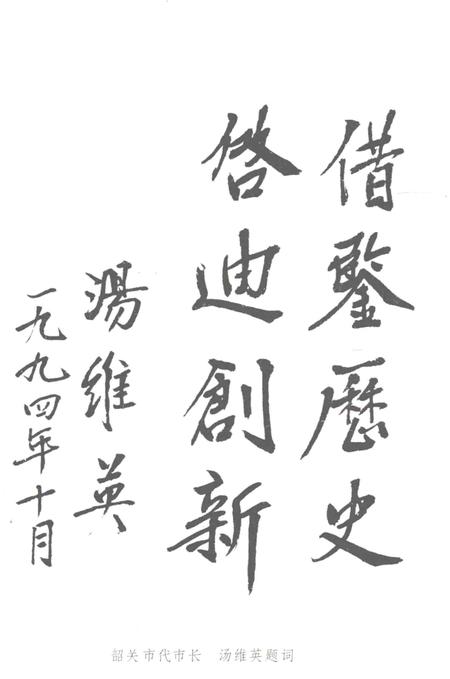 借鑒歷史
啓迪創新
湯維英
一九九四年十月
韶关市代市长　汤维英题词